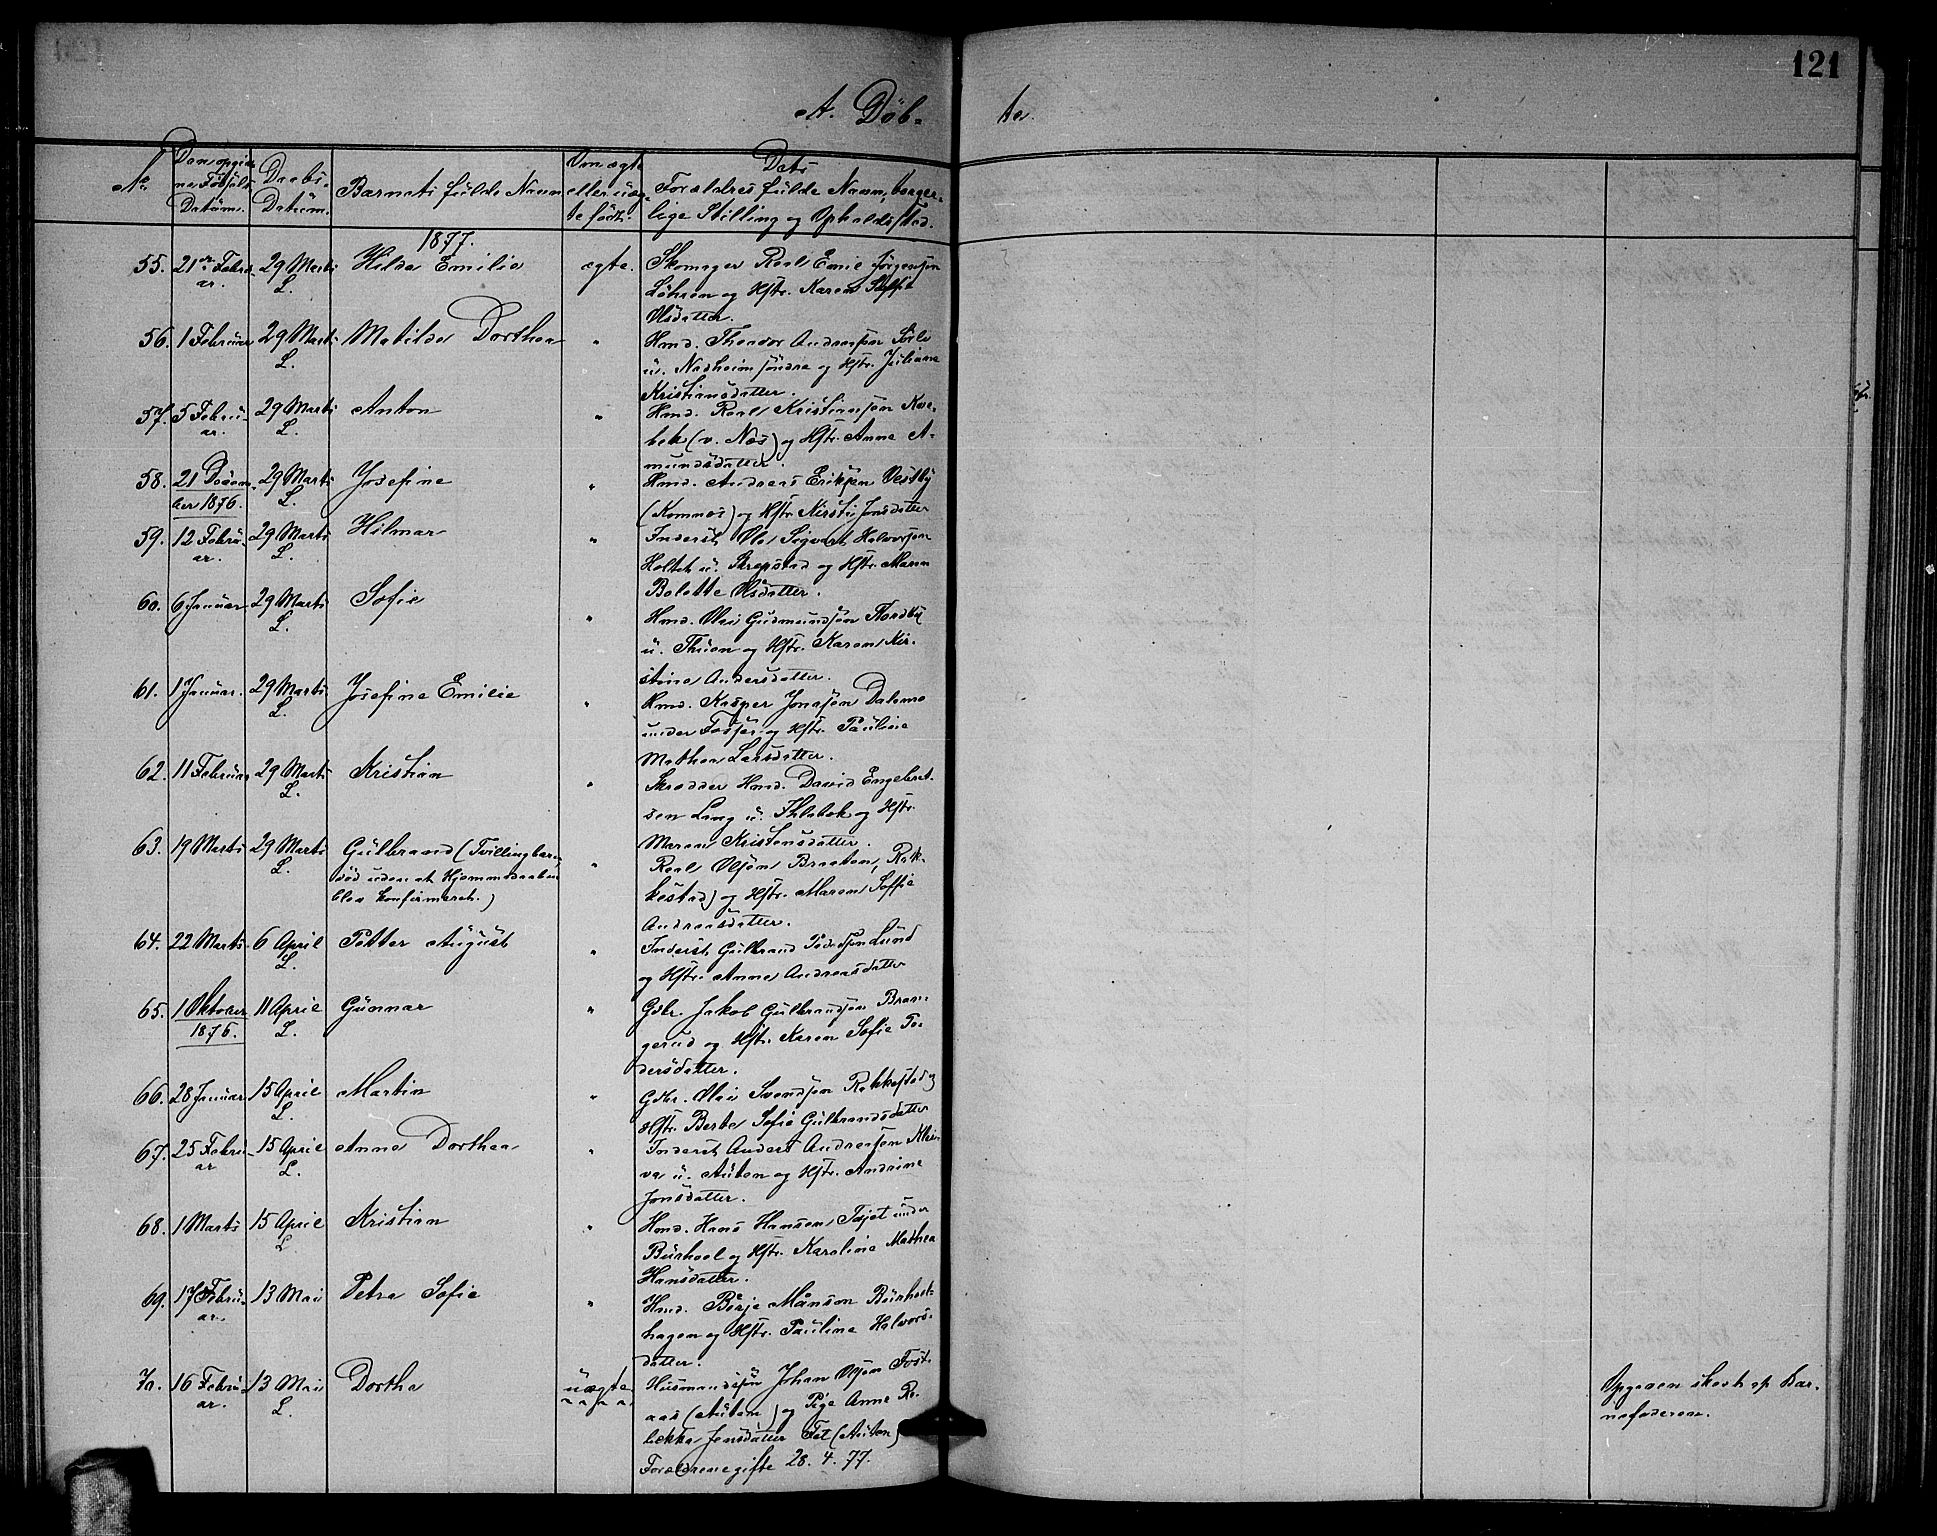 121
A. Døb-
te.
No.
Den opgiv-
ne Fødsels-
Datum.
Daabs-
Datum.
Barnets fulde Navn
Om ægte
eller uæg-
te født.
Dets
Forældres fulde Navn, borger-
lige Stilling og Opholdssted.
1877.
55. 21de Febru- 29 Marts Hilda Emilie ægte. Skomager Karl Emil Jørgensen
ar. L. Løhren og Hstr. Karen Soffie
Olsdatter.
56. 1 Februar 29 Marts Matilde Dorthea " Hmd. Theodor Andreasen
L. u. Nadheim søndre og Hstr. Juliane
Kristiansdatter.
57. 5 Febru- 29 Marts Anton " Hmd. Karl Kristiansen
ar. L. bek (v. Næs) og Hstr. Anne A-
mundsdatter.
58. 21 Decem- 29 Marts Josefine " Hmd. Andreas Eriksen Vestby
ber 1876. L. (Komnæs) og Hstr. Kirsti Jonsdatter
59. 12 Febru- 29 Marts Hilmar " Inderst Ole Sigvart Halvorsen
ar. L. Holtet u. og Hstr. Maren
Bolette Olsdatter.
60. 6 Januar 29 Marts Sofie " Hmd. Olai Gudmundsen Nordby
L. u. Thuen og Hstr. Karen Kir-
stine Andersdatter.
61. 1 Januar. 29 Marts Josefine Emilie " Hmd. Kasper Jonasen Dalemo
L. under Fosser og Hstr. Pauline
Mathea Larsdatter.
62. 11 Februar 29 Marts Kristian " Skrædder Hmd. David Engebret-
L. sen Lang u. og Hstr.
Maren Kristensdatter.
63. 19 Marts 29 Marts Gulbrand (Tvillingbarn, " Karl Olsen Braaten, Rak-
L. død uden at Hjemmedaaben kestad) og Hstr. Maren Soffie
blev konfirmeret.) Andreasdatter.
64. 22 Marts 6 April Petter August " Inderst Gulbrand Pedersen Lund
L. og Hstr. Anne Andreasdatter
65. 1 Oktober 11 April Gunnar " Gdbr. Jakob Gulbrandsen Bran-
1876. L. gerud og Hstr. Karen Sofie Pe-
dersdatter.
66. 28 Januar 15 April Martin " Gdbr. Olai Svendsen Rakkestad og
L. Hstr. Berte Sofie Gulbrandsdatter
67. 25 Febru- 15 April Anne Dorthea " Inderst Anders Andreasen
ar L. va u. Auten og Hstr. Andrine
Jonsdatter.
68. 1 Marts 15 April Kristian " Hmd. Hans Hansen Tajet under
L. Burhol og Hstr. Karoline Mathea
Hansdatter.
69. 17 Febru- 13 Mai Petra Sofie " Hmd. Børje Månson Burhol-
ar. hagen og Hstr. Pauline Halvors-
datter.
70. 16 Febru- 13 Mai Dorthe uægte Husmandssøn Johan Olsen Fost-
ar. L. aas (Auten) og Pige Anne Re-
bekka Jensdatter Fet (Auten)
Forældrene gifte 28.4.77.
Opgaven skeet af Bar-
nefaderen.